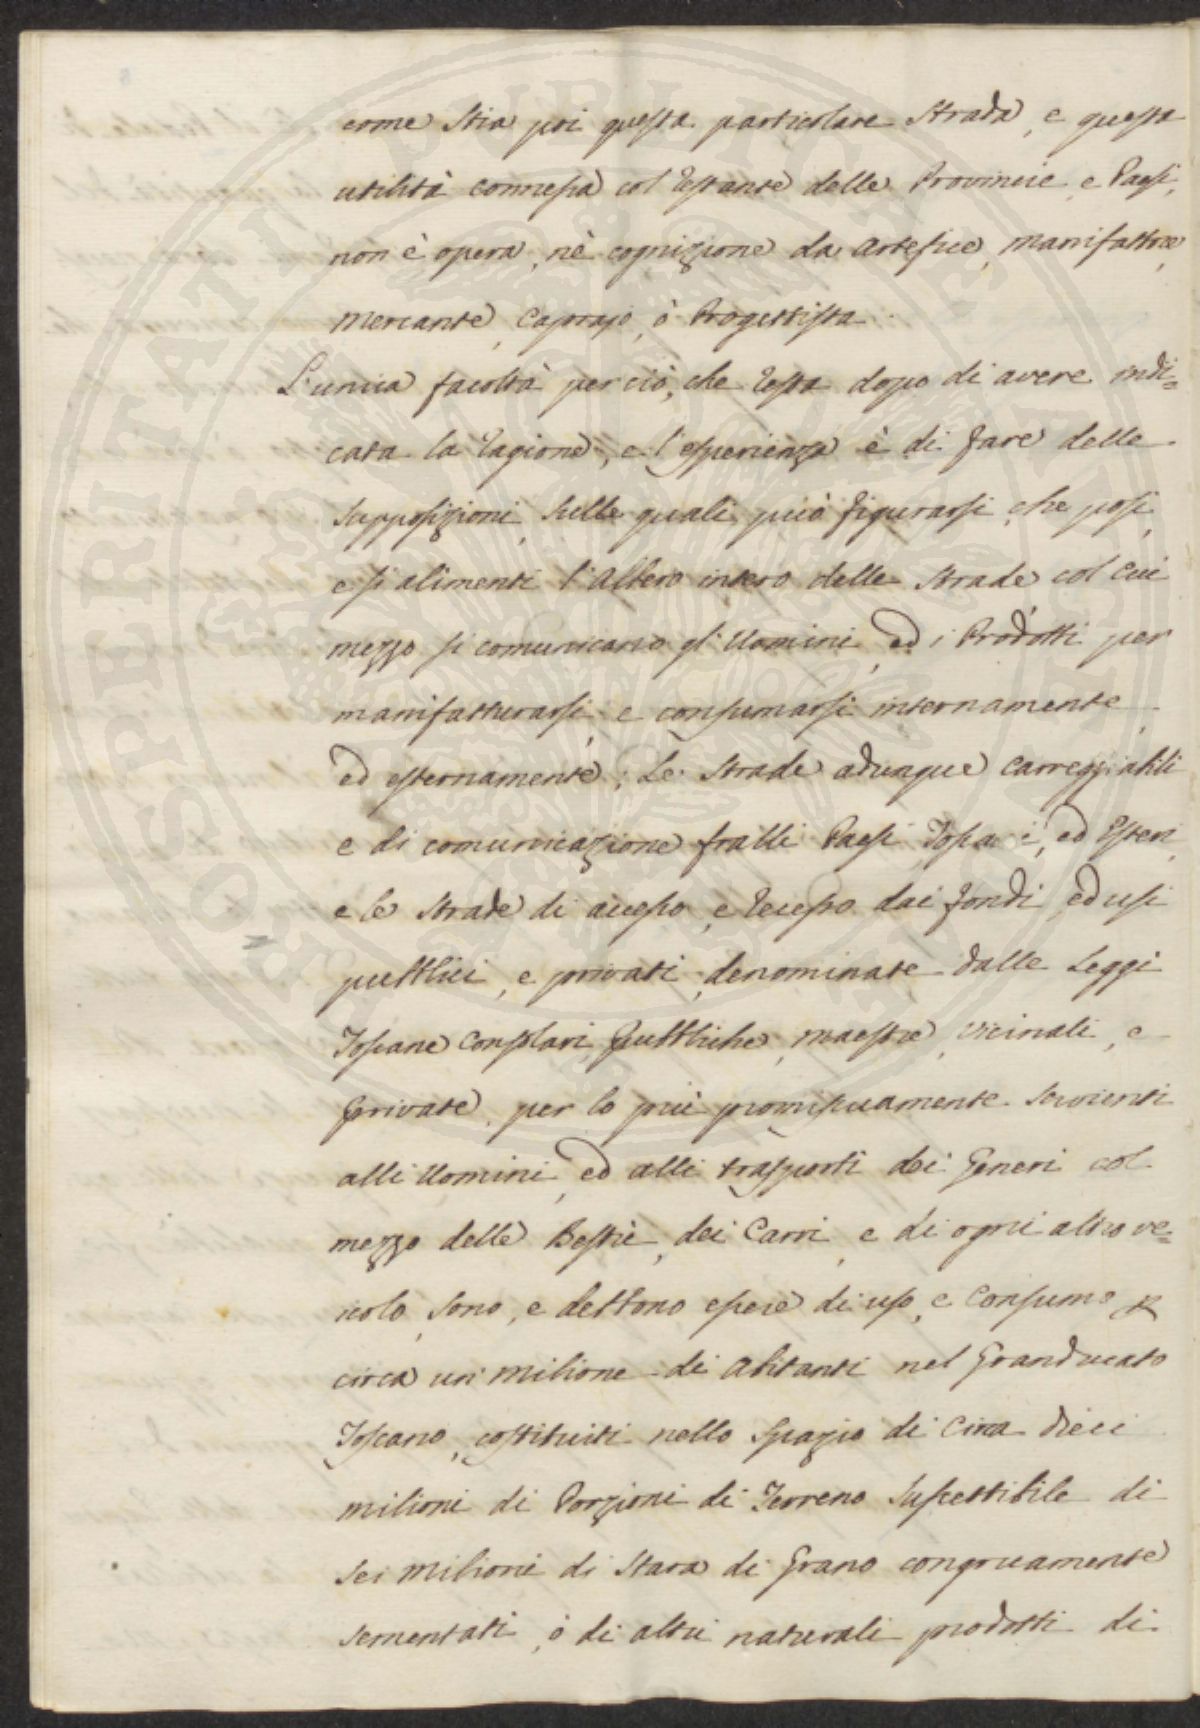 come stia poi questa particolare Strada, e questa
utilità connessa col restante delle Provincie, e Paesi,
non è opera, nè cognizione da Artefice, Manifattore,
Mercante, Caprajo, ò Progettista.
L'unica facoltà per ciò, che resta dopo di avere indi=
cata la ragione, e l'esperienza è di fare delle
supposizioni, sulle quali può figurarsi, che posi,
e si alimenti l'albero intero delle strade col cui
mezzo si comunicano gl'Uomini, ed i Prodotti per
manifatturarsi, e consumarsi internamente,
ed esternamente; Le strade adunque carreggiabili
e di comunicazione fralli Paesi Toscani, ed Esteri,
e le strade di accesso, e recesso dai fondi, ed usi
pubblici, e privati, denominate dalle Leggi
Toscane Consolari, Pubbliche, maestre, vicinali, e
private, per lo più promiscuamente servienti
alli Uomini, ed alli trasporti dei Generi col
mezzo delle Bestie, dei Carri, e di ogni altro ve=
icolo, sono, e debbono essere di uso, e consumo p
circa un milione di Abitanti nel Granducato
Toscano, costituiti nello spazio di circa dieci
milioni di Porzioni di Terreno suscettibile di
sei milioni di Stara di Grano congruamente
sementati, ò di altri naturali prodotti di
PROSPERITATI PUBLICAE AUGENDAE